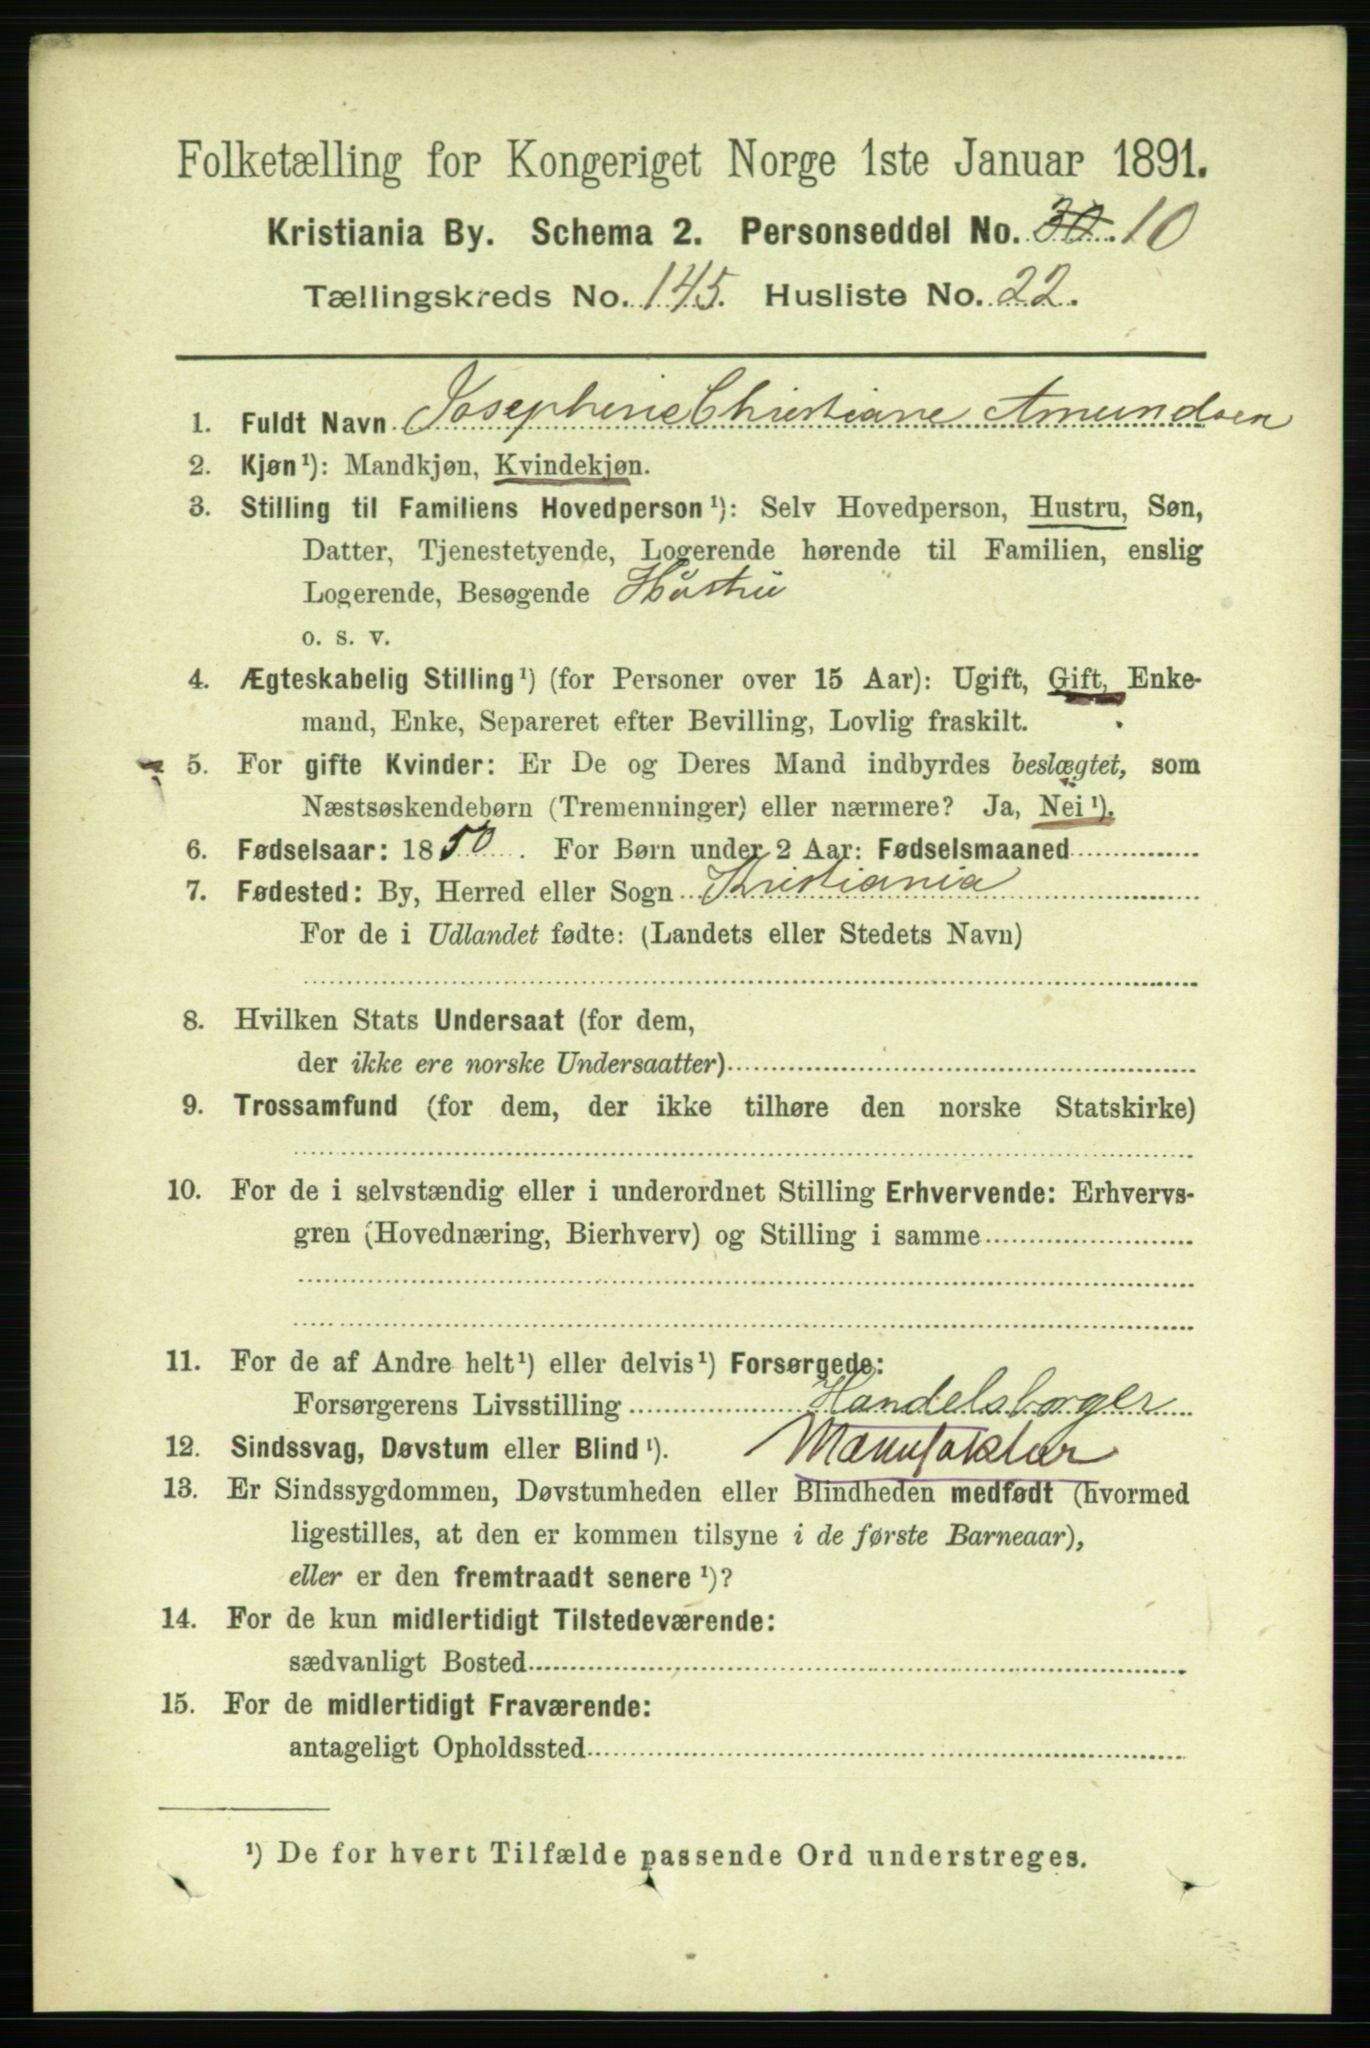 Folketælling for Kongeriget Norge 1ste Januar 1891.
Kristiania By. Schema 2. Personseddel No. 30 10
Tællingskreds No. 145. Husliste No. 22.
1. Fuldt Navn Josephine Christiane Amundsen
2. Kjøn¹): Mandkjøn, Kvindekjøn.
3. Stilling til Familiens Hovedperson¹): Selv Hovedperson, Hustru, Søn,
Datter, Tjenestetyende, Logerende hørende til Familien, enslig
Logerende, Besøgende Hustru
o. s. v.
4. Ægteskabelig Stilling¹) (for Personer over 15 Aar): Ugift, Gift, Enke-
mand, Enke, Separeret efter Bevilling, Lovlig fraskilt.
5. For gifte Kvinder: Er De og Deres Mand indbyrdes beslægtet, som
Næstsøskendebørn (Tremenninger) eller nærmere? Ja, Nei¹).
6. Fødselsaar: 1850. For Børn under 2 Aar: Fødselsmaaned
7. Fødested: By, Herred eller Sogn Kristiania
For de i Udlandet fødte: (Landets eller Stedets Navn)
8. Hvilken Stats Undersaat (for dem,
der ikke ere norske Undersaatter)
9. Trossamfund (for dem, der ikke tilhøre den norske Statskirke)
10. For de i selvstændig eller i underordnet Stilling Erhvervende: Erhvervs-
gren (Hovednæring, Bierhverv) og Stilling i samme
11. For de af Andre helt¹) eller delvis¹) Forsørgede:
Forsørgerens Livsstilling Handelsborger
12. Sindssvag, Døvstum eller Blind¹). Manufaktur
13. Er Sindssygdommen, Døvstumheden eller Blindheden medfødt (hvormed
ligestilles, at den er kommen tilsyne i de første Barneaar),
eller er den fremtraadt senere¹)?
14. For de kun midlertidigt Tilstedeværende:
sædvanligt Bosted
15. For de midlertidigt Fraværende:
antageligt Opholdssted
¹) De for hvert Tilfælde passende Ord understreges.